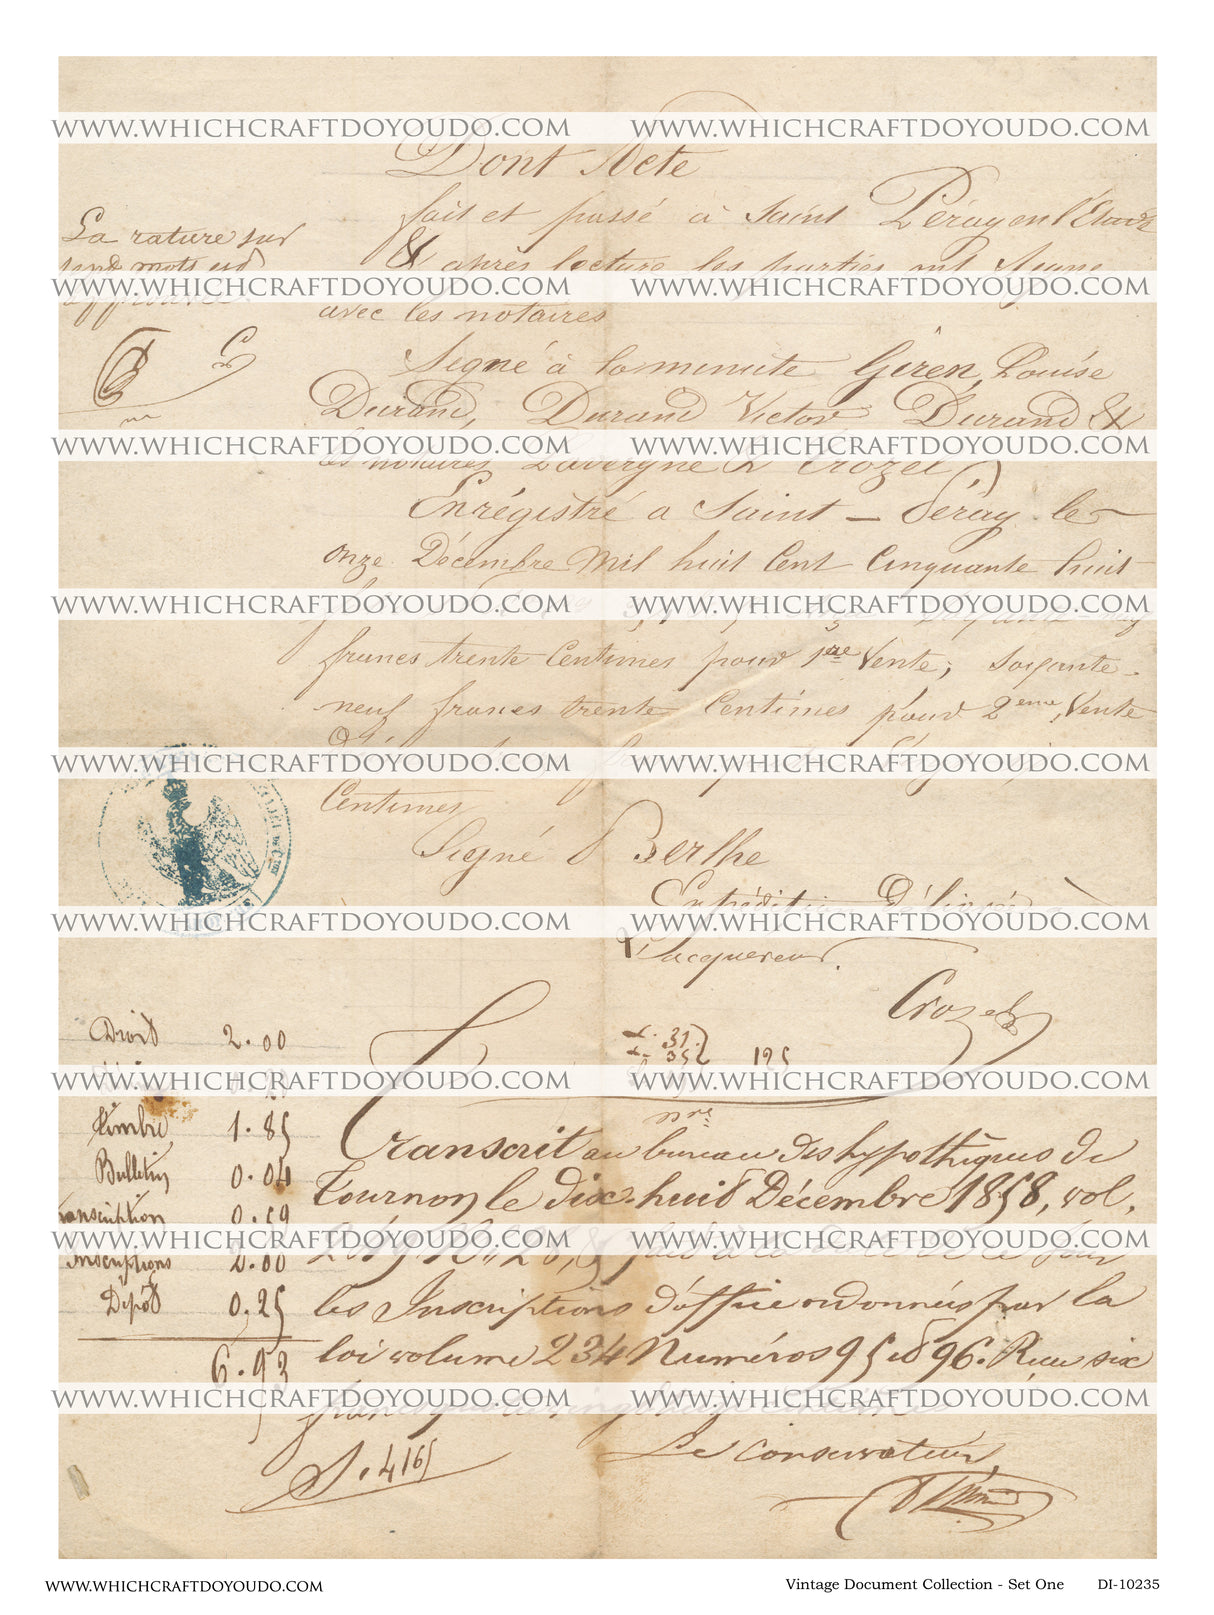 WWW.WHICHCRAFTDOYOUDO.COM WWW.WHICHCRAFTDOYOUDO.COM
Dont Acte
fait et passé à Saint Péray en l'Etude
& après lecture les parties ont signé
WWW.WHICHCRAFTDOYOUDO.COM WWW.WHICHCRAFTDOYOUDO.COM
avec les notaires
La rature sur
sept mots est
approuvée
Signé à la minute Giren, Louise
Durand, Durand Victor Durand &
WWW.WHICHCRAFTDOYOUDO.COM WWW.WHICHCRAFTDOYOUDO.COM
les notaires Lavergne & Crozel
Enrégistré a Saint-Péray le
onze Décembre Mil huit Cent Cinquante huit
WWW.WHICHCRAFTDOYOUDO.COM WWW.WHICHCRAFTDOYOUDO.COM
francs trente Centimes pour 1re Vente; Soixante-
neuf francs trente Centimes pour 2eme Vente
WWW.WHICHCRAFTDOYOUDO.COM WWW.WHICHCRAFTDOYOUDO.COM
Centimes
Signé Berthe
Expédition Délivrée à
WWW.WHICHCRAFTDOYOUDO.COM WWW.WHICHCRAFTDOYOUDO.COM
L'acquereur.
Crozel
Droit 2.00
WWW.WHICHCRAFTDOYOUDO.COM WWW.WHICHCRAFTDOYOUDO.COM
Timbre 1.85
Bulletin 0.04
Transcription 0.59
WWW.WHICHCRAFTDOYOUDO.COM WWW.WHICHCRAFTDOYOUDO.COM
Inscriptions 2.00
Dépôt 0,25
6.93
Transcrit au bureau des hypothèques de
Tournon le dix-huit Décembre 1858, vol.
les Inscriptions d'office ordonnées par la
loi volume 234 Numéros 95 et 96. Reçu six
WWW.WHICHCRAFTDOYOUDO.COM WWW.WHICHCRAFTDOYOUDO.COM
francs quatre vingt treize centimes
Le conservateur,
WWW.WHICHCRAFTDOYOUDO.COM Vintage Document Collection - Set One DI-10235